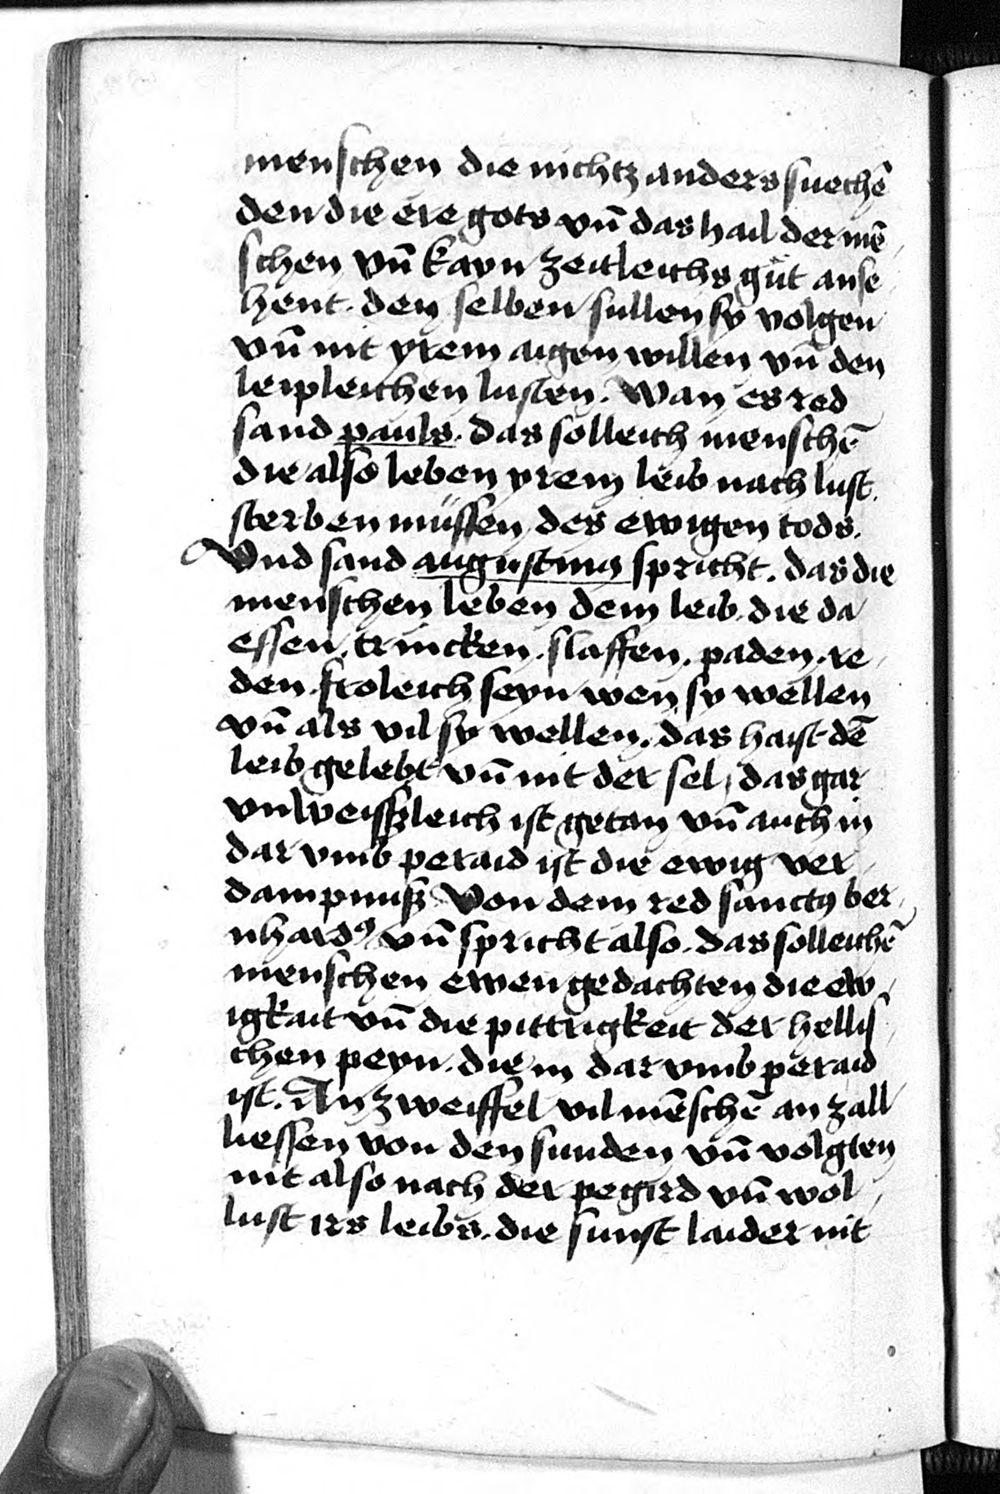 menschen die nichtz anders suechē
den die ere gots vn̄ das hail der mē
schen vn̄ kayn zeitleichs gůt anse
hent. den selben sullen sy volgen
vn̄ nit yrem aigen willen vn̄ den
leipleichen lusten. Wan es red
sand pauls. das solleich menschē
die also leben yrem leib nach lust
sterben müssen des ewigen tods.
Vnd sand augustinus spricht. das die
menschen leben dem leib. die da
essen. trincken. slaffen. paden. re
den. froleich seyn wen sy wellen
vn̄ als vil sy wellen. das haist dē
leib gelebt vn̄ nit der sel, das gar
vnweisszleich ist getan vn̄ auch in
dar vmb peraid ist die ewig ver
dampnusz Von dem red sanctus ber
nhardꝰ vn̄ spricht also. das solleichē
menschen ewen gedachten die ew
igkait vn̄ die pittrigkeit der hellis
chen peyn. die in dar vmb peraid
ist. An zweiffel vil mēschē an zall
liessen von den sunden vn̄ volgten
nit also nach der pegird vn̄ wol
lust irs leibs. die sunst laider nit